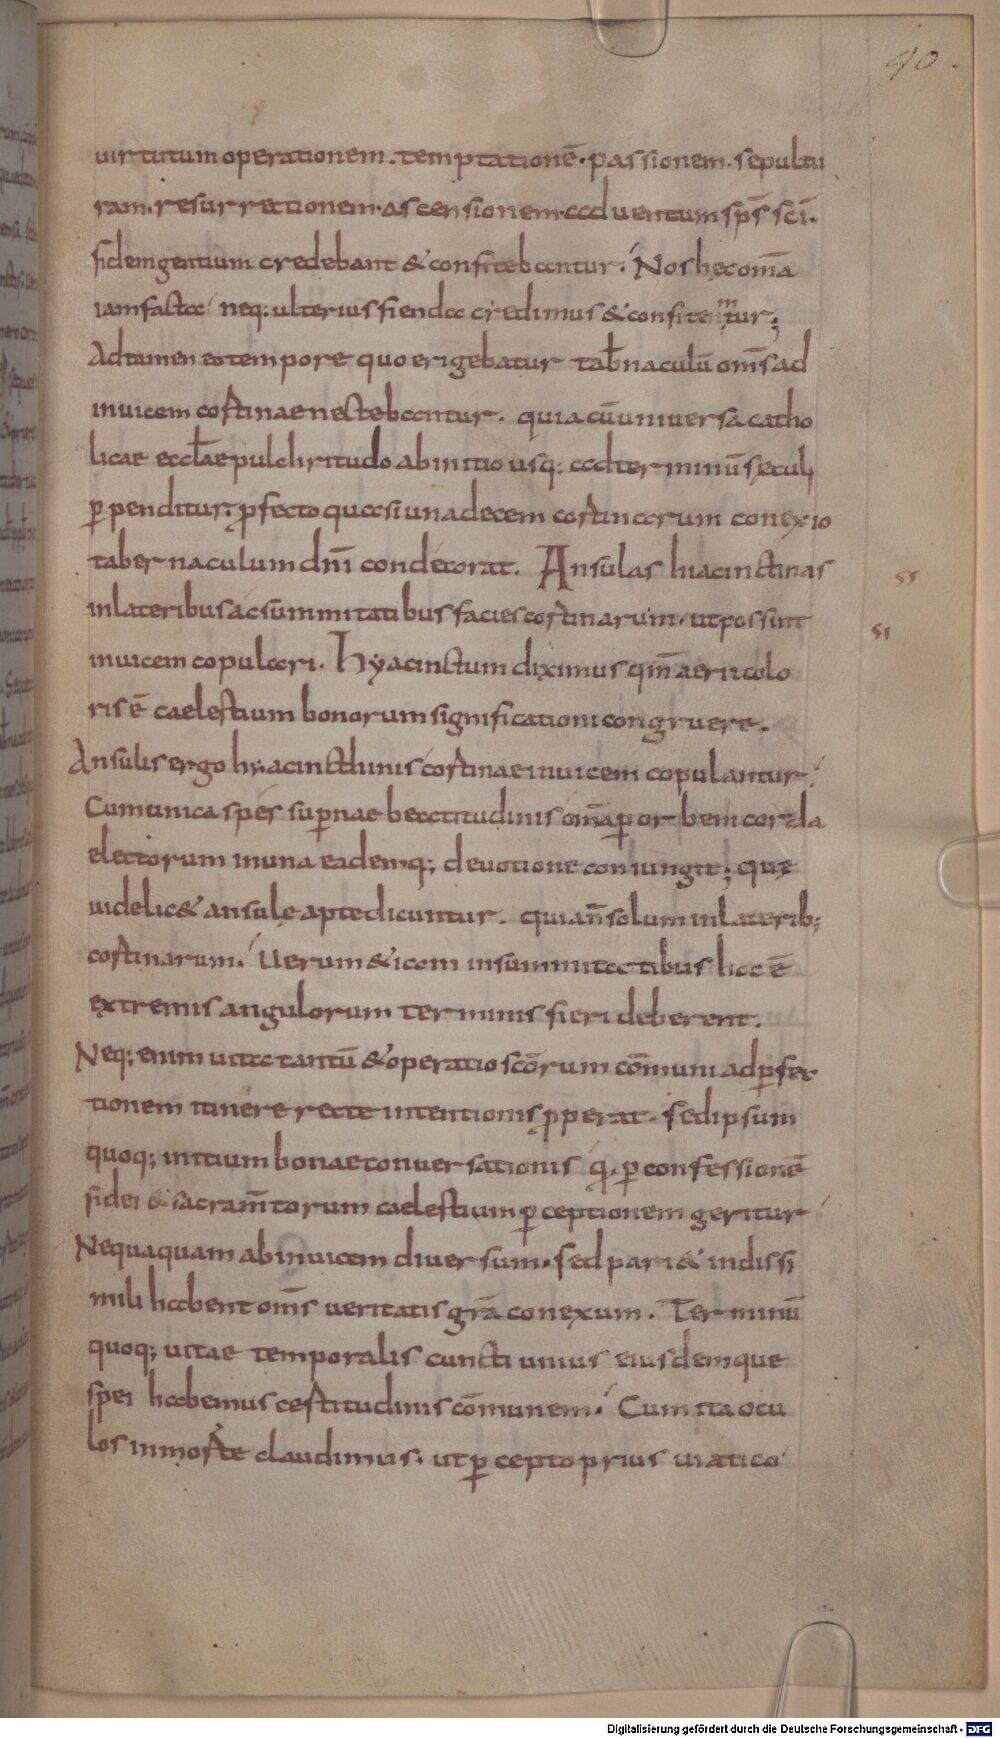 40.
uirtutum operationem. temptationē. passionem. sepultu
ram. resurrectionem. ascensionem. aduentum sp̄s sc̄i.
fidem gentium credebant & confitebantur. Nos hęc om̄a
iam facta neq; ulterius fienda credimus & confitemur;
Adtamen eo tempore quo erigebatur tab̄naculū om̄s ad
inuicem cortinae nectebantur. quia cū uniuersa catho
licae eccl̄ae pulchritudo ab initio usq; ad terminū sęculi
ꝑpenditur. ꝓfecto quasi una decem cortinarum conexio
tabernaculum dn̄i condecorat. Ansulas hiacinctinas
in lateribus ac summitatibus facies cortinarum. ut possint
inuicem copulari. Hyacinctum diximus qm̄ aerii colo
ris ē caelestium bonorum significationi congruere.
Ansulis ergo hyacincthinis cortinae inuicem copulantur.
Cum unica spes suꝑnae beatitudinis om̄a ꝑ orbem corda
electorum in una eademq; deuotione coniungit; quę
uidelic& ansulę apte dicuntur. quia n̄ solum in laterib;
cortinarum. Uerum & iam in summitatibus hoc ē
extremis angulorum terminis fieri deberent.
Neq; enim uita tantū & operatio sc̄orum cōmuni ad ꝑfec
tionem itinere recte intentionis ꝓperat. sed ipsum
quoq; initium bonae conuersationis qđ ꝑ confessionē
fidei & sacram̄torum caelestium ꝑceptionem geritur
Nequaquam ab inuicem diuersum. sed pari & indissi
mili habent om̄s ueritatis gr̄a conexum. Terminū
quoq; uitae temporalis cuncti unius eiusdemque
spei habemus certitudinis cōmunem. Cum ita ocu
los in morte claudimus. ut ꝑcepto prius uiatico
Digitalisierung gefördert durch die Deutsche Forschungsgemeinschaft - DFG